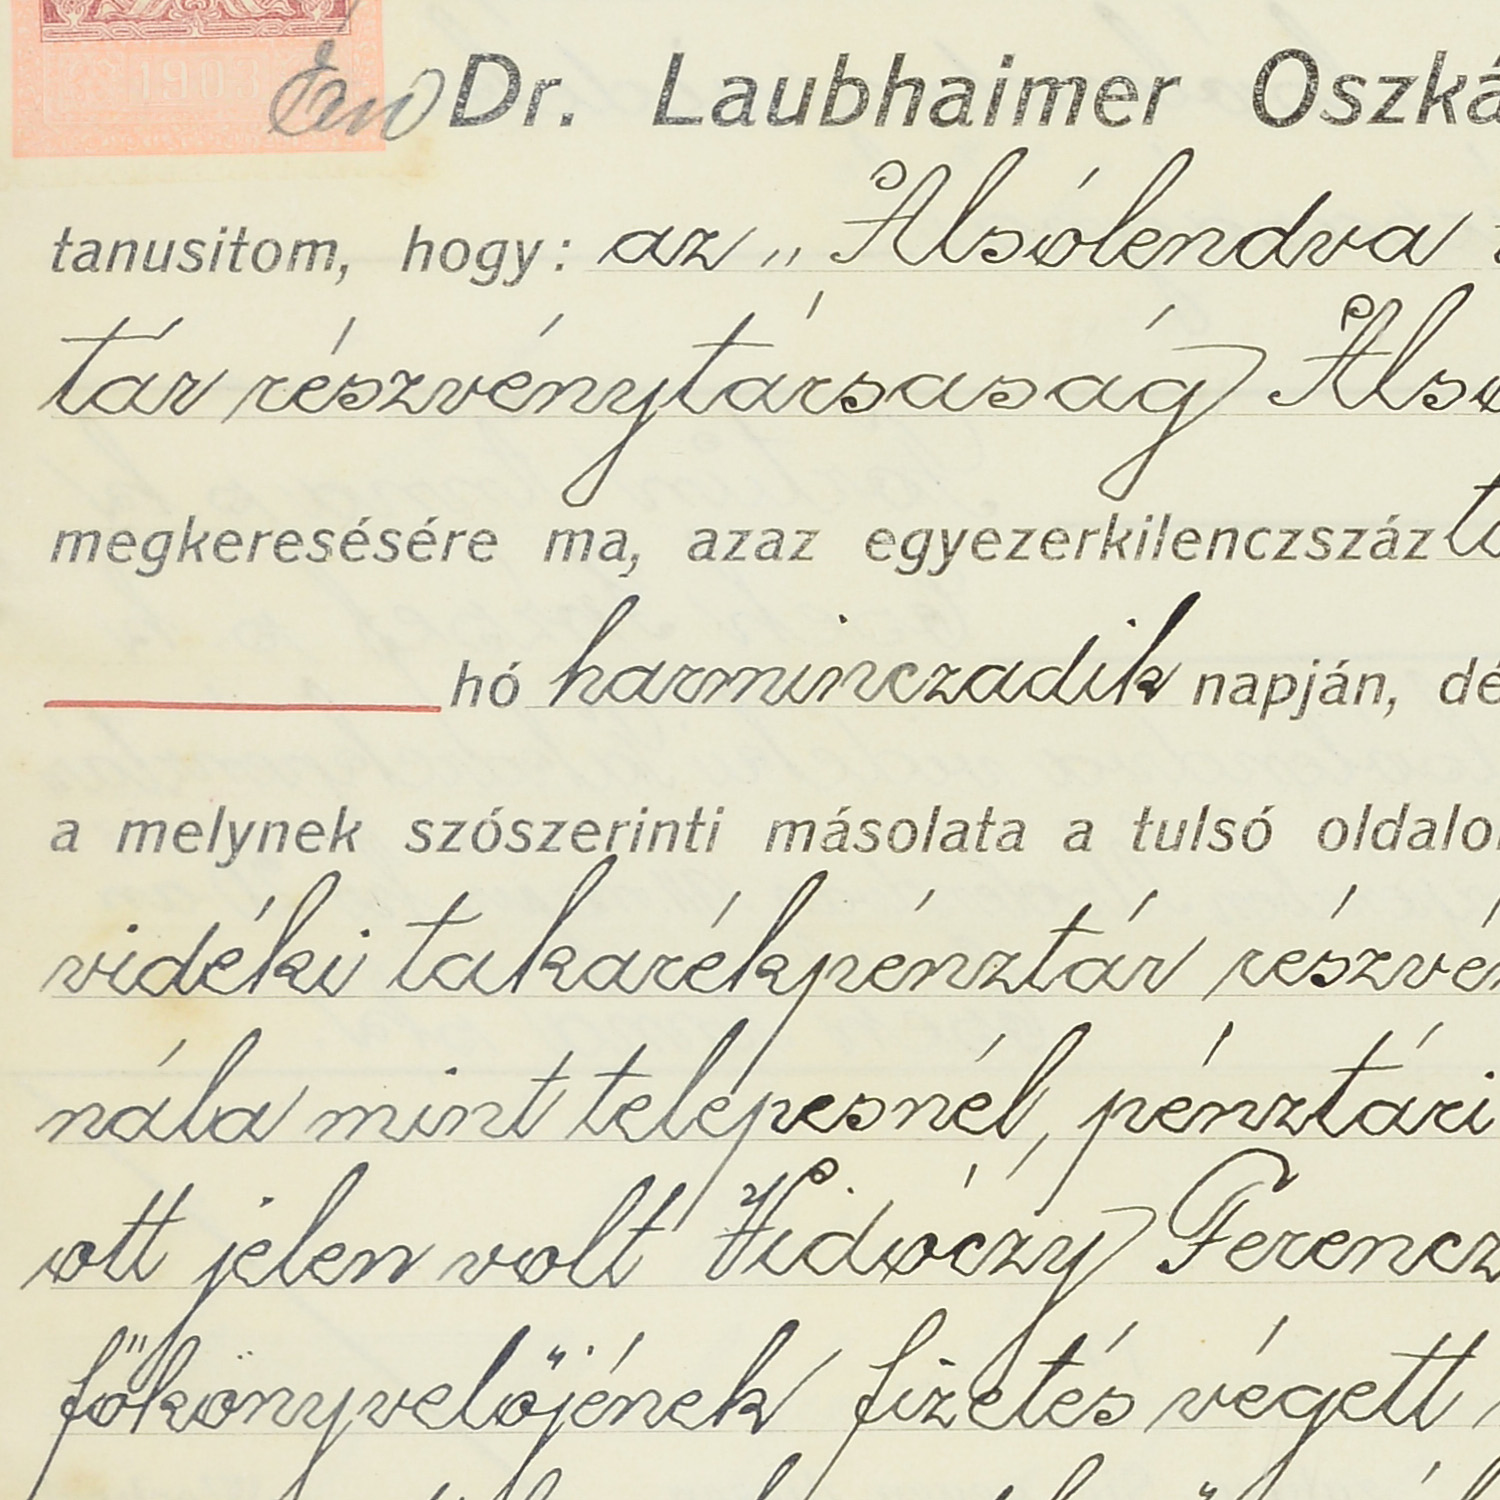 1903
Én Dr. Laubhaimer Oszká
tanusitom, hogy: az „Alsólendva
tár részvénytársaság Alsó
megkeresésére ma, azaz egyezerkilenczszáz
hó harminczadik napján, dé
a melynek szószerinti másolata a tulsó oldalo
vidéki takarékpénztár részvén
nála mint telepesnél, pénztári
ott jelen volt Vidóczy Ferencz
főkönyvelőjének fizetés végett